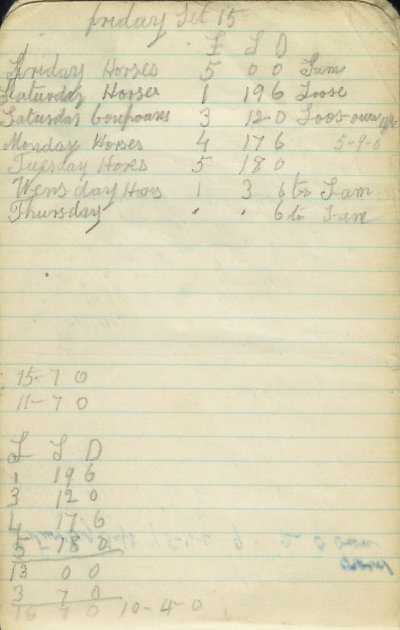 friday Set 15
£ S D
Friday Horses 5 0 0
Saturday Horses 1 19 6 Loose
Saturday 3 12 0 Loos over
Monday Horses 4 17 6 5-9-0
Tuesday Hores 5 18 0
Wensday Hors 1 3 6 to
Thursday . . 6 to
15-7 0
11-7 0
£ S D
1 19 6
3 12 0
4 17 6
18 0
13 0 0
3 7 0
16 0 10-4-0